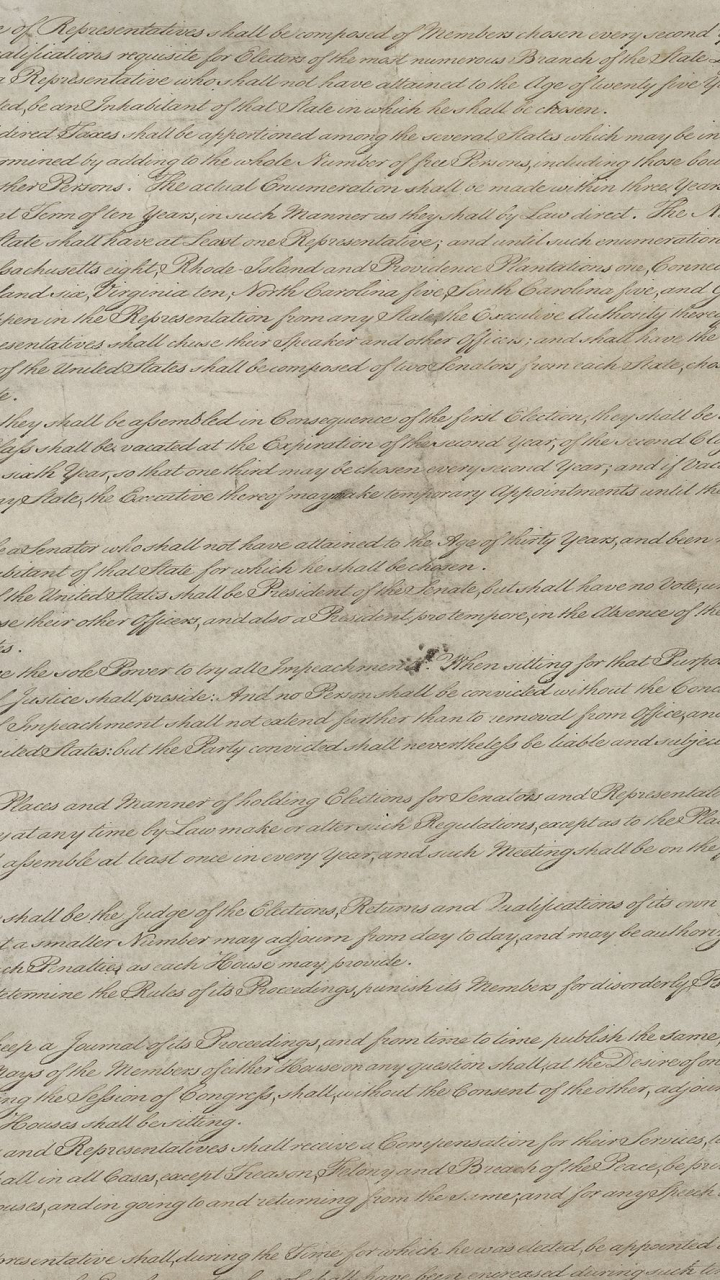 e of Representatives shall be composed of Members chosen every second
alifications requisite for Electors of the most numerous Branch of the State
a Representative who shall not have attained to the Age of twenty five
ted, be an Inhabitant of that State in which he shall be chosen.
dered Taxes shall be apportioned among the several States which may be in
rmined by adding to the whole Number of free Persons, including those bou
ther Persons. The actual Enumeration shall be made within three Years
nt Term of ten Years, in such Manner as they shall by Law direct. The N
State shall have at Least one Representative; and until such enumeration
ssachusetts eight, Rhode-Island and Providence Plantations one, Connec
land six, Virginia ten, North Carolina five, South Carolina five, and G
ppen in the Representation from any State, the Executive Authority thereo
esentatives shall chuse their Speaker and other Officers; and shall have the
of the United States shall be composed of two Senators from each State, cho
e.
they shall be assembled in Consequence of the first Election, they shall be
lass shall be vacated at the Expiration of the second Year, of the second Cl
sixth Year, so that one third may be chosen every second Year; and if Vac
ny State, the Executive thereof may make temporary Appointments until the
be a Senator who shall not have attained to the Age of thirty Years, and been
abitant of that State for which he shall be chosen.
f the United States shall be President of the Senate, but shall have no Vote, u
se their other Officers, and also a President pro tempore, in the Absence of the
es.
ve the sole Power to try all Impeachments. When sitting for that Purpo
f Justice shall preside: And no Person shall be convicted without the Conc
f Impeachment shall not extend further than to removal from Office, and
nited States: but the Party convicted shall nevertheless be liable and subjec
Places and Manner of holding Elections for Senators and Representati
y at any time by Law make or alter such Regulations, except as to the Pla
l assemble at least once in every Year, and such Meeting shall be on the
shall be the Judge of the Elections, Returns and Qualifications of its own
t a smaller Number may adjourn from day to day, and may be authoriz
ch Penalties as each House may provide.
etermine the Rules of its Proceedings, punish its Members for disorderly
keep a Journal of its Proceedings, and from time to time publish the same,
Nays of the Members of either House on any question shall, at the Desire of on
ing the Session of Congress, shall, without the Consent of the other, adjou
Houses shall be sitting.
and Representatives shall receive a Compensation for their Services, to
hall in all Cases, except Treason, Felony and Breach of the Peace, be pri
ouses, and in going to and returning from the same; and for any Speech
presentative shall, during the Time for which he was elected, be appointed
shall have been encreased during such